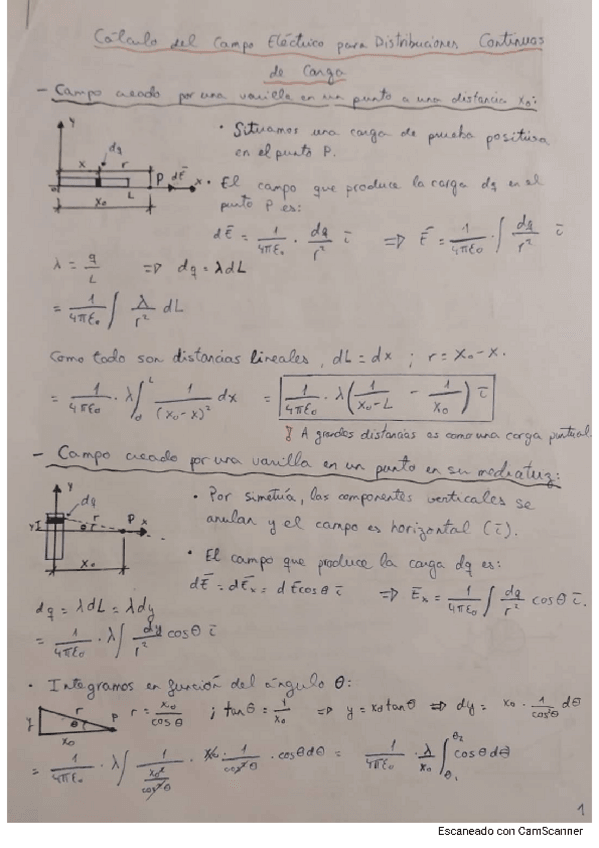 Cálculo del Campo Eléctrico para Distribuciones Continuas
de Carga
- Campo creado por una varilla en un punto a una distancia x₀:
y
dq
x r
P dĒ x
0 L
x₀
• Situamos una carga de prueba positiva
en el punto P.
• El campo que produce la carga dq en el
punto P es:
dĒ = 1/4πε₀ · dq/r² ī ⇒ Ē = 1/4πε₀ · ∫ dq/r² ī
λ = q/L ⇒ dq = λdL
= 1/4πε₀ ∫ λ/r² dL
Como todo son distancias lineales, dL = dx ; r = x₀-x.
= 1/4πε₀ · λ∫₀ᴸ 1/(x₀-x)² dx = 1/4πε₀ · λ(1/x₀-L - 1/x₀) ī
A grandes distancias es como una carga puntual.
- Campo creado por una varilla en un punto en su mediatriz:
y
dq
y r θ P x
x₀
• Por simetría, las componentes verticales se
anulan y el campo es horizontal (ī).
• El campo que produce la carga dq es:
dĒ = dĒx = dĒcosθ ī ⇒ Ēx = 1/4πε₀ ∫ dq/r² cosθ ī.
dq = λdL = λdy
= 1/4πε₀ · λ∫ dy/r² cosθ ī
• Integramos en función del ángulo θ:
y r θ P
x₀
r = x₀/cosθ ; tanθ = y/x₀ ⇒ y = x₀tanθ ⇒ dy = x₀ · 1/cos²θ dθ
= 1/4πε₀ · λ∫ 1/(x₀²/cos²θ) · x₀ · 1/cos²θ · cosθdθ = 1/4πε₀ · λ/x₀ ∫θ₁^θ₂ cosθdθ
1
Escaneado con CamScanner